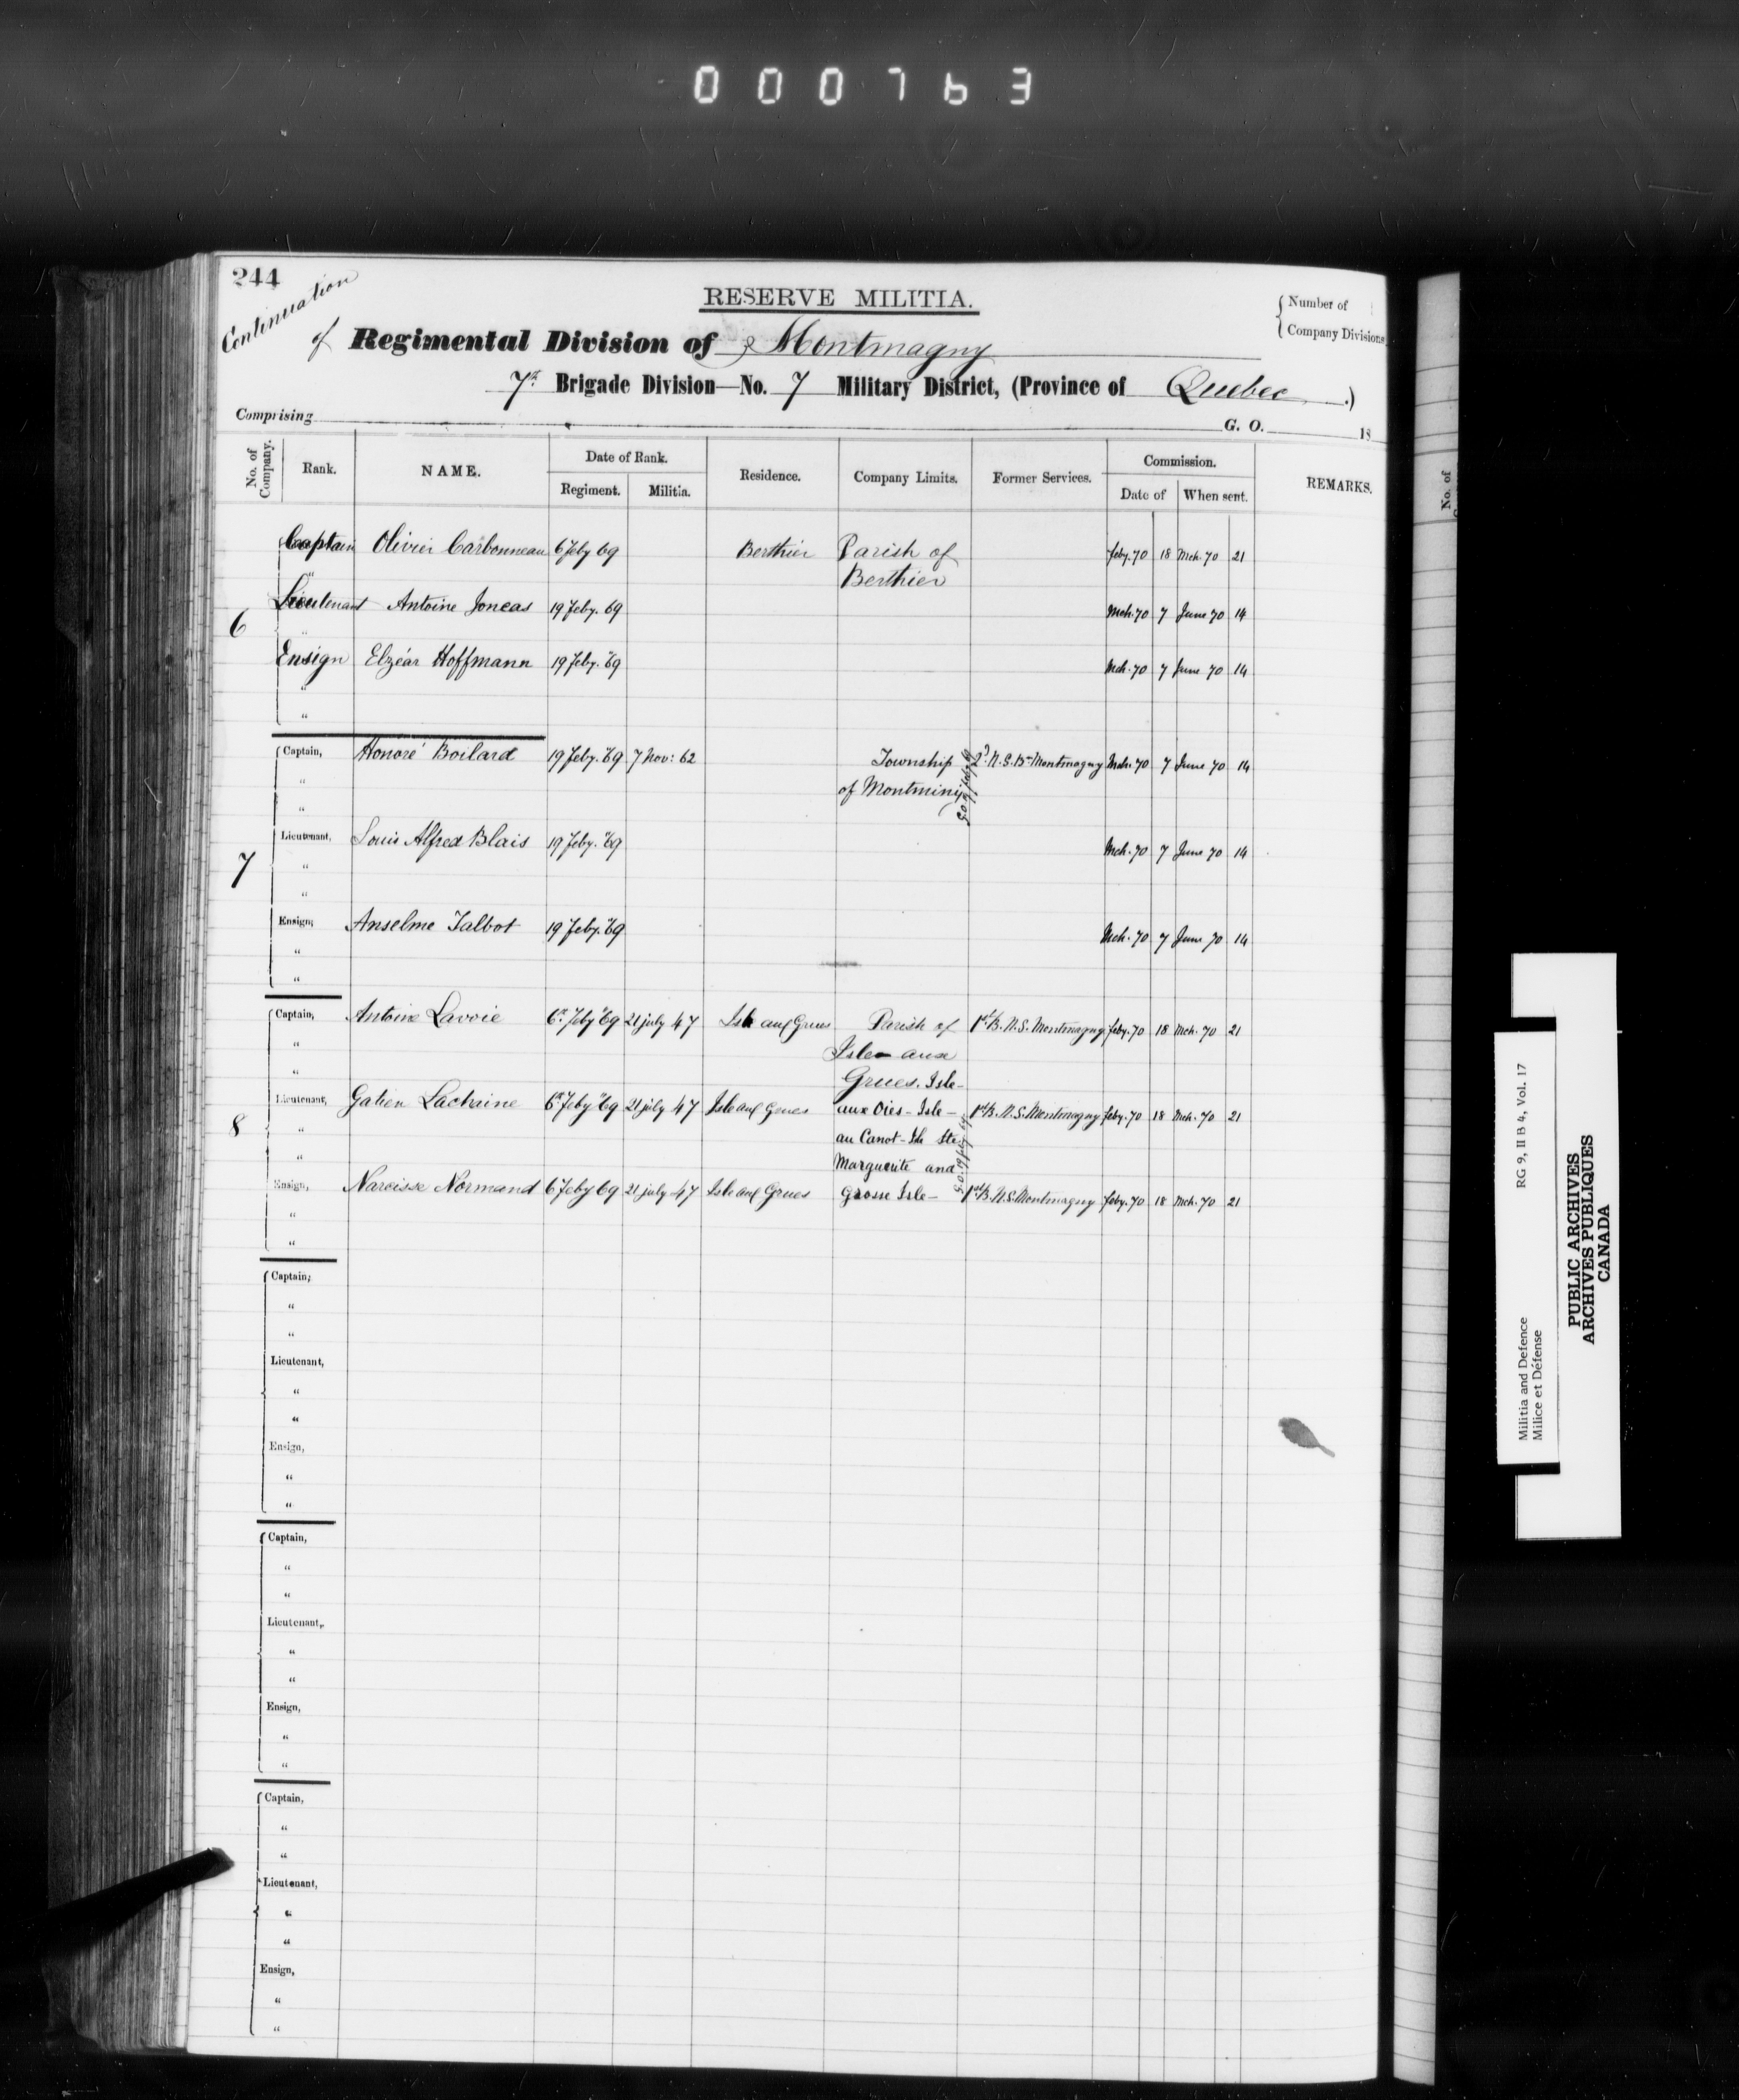 000763
244
RESERVE MILITIA.
Number of
Company Divisions
Continuation
of Regimental Division of Montmagny
7th Brigade Division—No. 7 Military District, (Province of Quebec.)
Comprising G. O. 18
No. of Company. Rank. NAME. Date of Rank. Residence. Company Limits. Former Services. Commission. REMARKS.
Regiment. Militia. Date of When sent.
Captain Olivier Carbonneau 6 Feby 69 Berthier Parish of Feby. 70 18 Mch. 70 21
Berthier
Lieutenant Antoine Joncas 19 Feby. 69 Mch. 70 7 June 70 14
6
Ensign Elzéar Hoffmann 19 Feby. 69 Mch. 70 7 June 70 14
"
"
Captain, Honoré Boilard 19 Feby. 69 7 Nov: 62 Township 2d N.S. Bn Montmagny Mch. 70 7 June 70 14
" of Montminy
"
Lieutenant, Louis Alfred Blais 19 Feby. 69 Mch. 70 7 June 70 14
7 "
"
Ensign, Anselme Talbot 19 Feby. 69 Mch. 70 7 June 70 14
"
"
Captain, Antoine Lavoie 6th Feby 69 21 July 47 Isle aux Grues Parish of 1st B. N.S. Montmagny Feby. 70 18 Mch. 70 21
" Isle aux
" Grues. Isle-
Lieutenant, Gatien Lachaine 6th Feby 69 21 July 47 Isle aux Grues aux Oies - Isle - 1st B. N.S. Montmagny Feby. 70 18 Mch. 70 21
8 " au Canot - Isle Ste
" Marguerite and
Ensign, Narcisse Normand 6 Feby 69 21 July 47 Isle aux Grues Grosse Isle - 1st B. N.S. Montmagny Feby. 70 18 Mch. 70 21
"
"
Captain,
"
"
Lieutenant,
"
"
Ensign,
"
"
Captain,
"
"
Lieutenant,
"
"
Ensign,
"
"
Captain,
"
"
Lieutenant,
"
"
Ensign,
"
"
No. of
Militia and Defence RG 9, II B 4, Vol. 17
Milice et Défense
PUBLIC ARCHIVES
ARCHIVES PUBLIQUES
CANADA